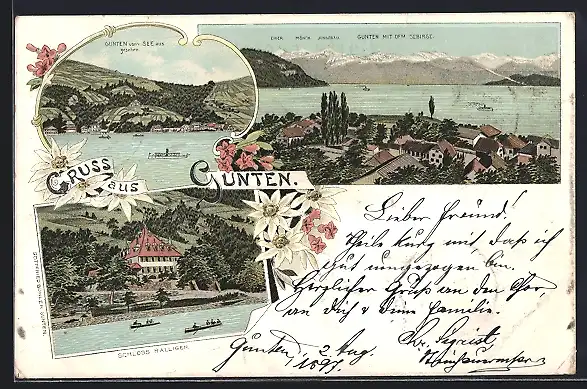 GUNTEN vom SEE aus
gesehen
EIGER MÖNCH JUNGFRAU GUNTEN MIT DEM GEBIRGE.
GRUSS
aus
GUNTEN.
SCHLOSS RALLIGEN
GUNTEN.
Lieber Freund!
Theile kurz mit, daß ich
gut umgezogen bin.
Herzlicher Gruß an den Chor,
an dich & deine Familie.
Gunten, 2 Aug.
1897.